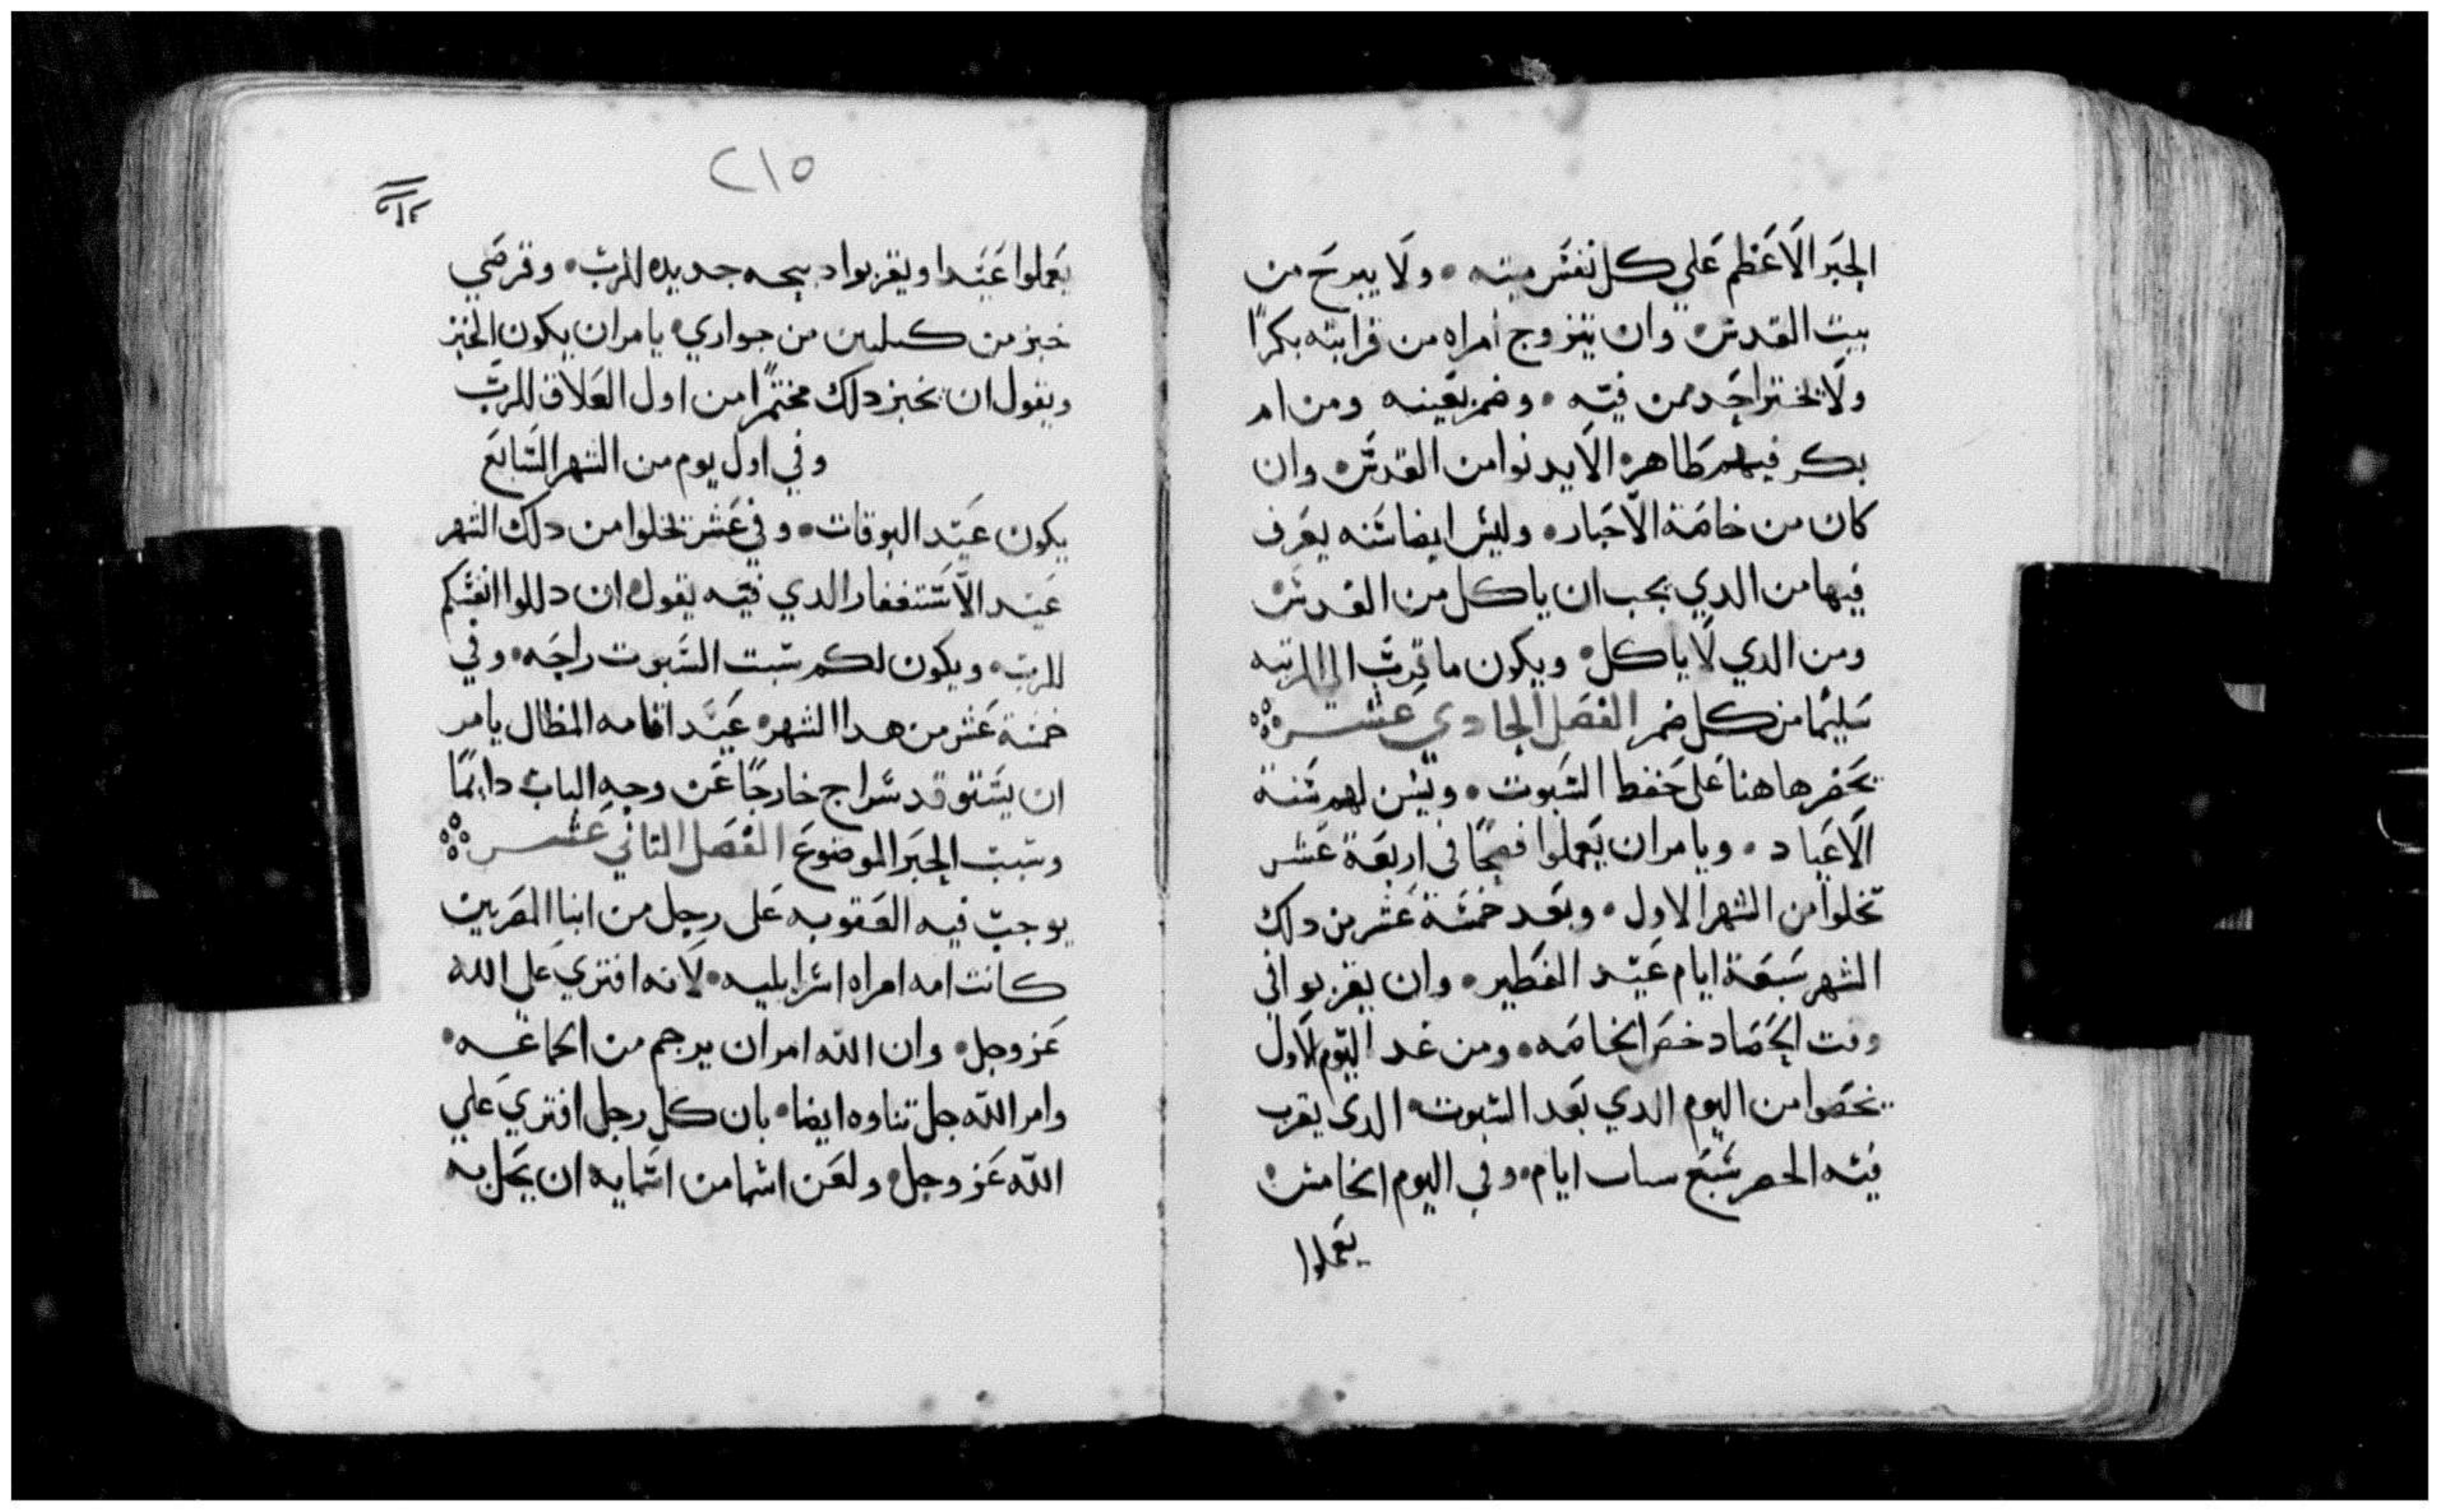 الحبر الاعظم علي كل نفس ميته • ولا يبرح من
بيت القدس • وان يتزوج امراه من قرابته بكرًا
ولا يختر احد ممن فيه • وضم بعينه ومن ام
بكر فيهم طاهره الا يدنوا من القدس • وان
كان من خاصة الاحبار • وليس ايضا سنه يعرف
فيها من الدي يجب ان ياكل من القدس
ومن الدي لا ياكل • ويكون ما قرب الي المرتبه
سليمًا من كل ضر الفصل الحادي عشر
يحض هاهنا على حفظ السبوت • ويسن لهم سنة
الاعياد • ويامر ان يعملوا فصحًا في اربعة عشر
تخلوا من الشهر الاول • وبعد خمسة عشر من دلك
الشهر سبعة ايام عيد الفطير • وان يقربوا في
وقت الحصاد خص الخاصه • ومن غد اليوم الاول
يحصوا من اليوم الدي بعد السبوت • الدى يقرب
فيه سبع ايام • وفي اليوم الخامس
يعملوا
٢١٥
يعملوا عيدا ويقربوا دبيحه جديده للرب • وقرصي
خبز من كيلين من حواري • يامر ان يكون الخبز
ويقول ان يخبز دلك مختمرًا من اول الغلات للرب
وفي اول يوم من الشهر السابع
يكون عيد البوقات • وفي عشر تخلوا من دلك الشهر
عيد الاستغفار الدي فيه يقول • ان دللوا انفسكم
للرب • ويكون لكم سبت السبوت راحه • وفي
خمسة عشر من هدا الشهر • عيد اقامه المظال يامر
ان يستوقد سراج خارجًا عن وجه الباب دايمًا
وسبب الحبر الموضوع الفصل التاني عشر
يوجب فيه العقوبه على رجل من ابنا المصريين
كانت امه امراه اسراييليه • لانه افتري علي الله
عز وجل • وان الله امر ان يرجم من الجماعه •
وامر الله جل تناوه ايضا • بان كل رجل افتري علي
الله عز وجل • ولعن اسما من اسمايه ان يحل به